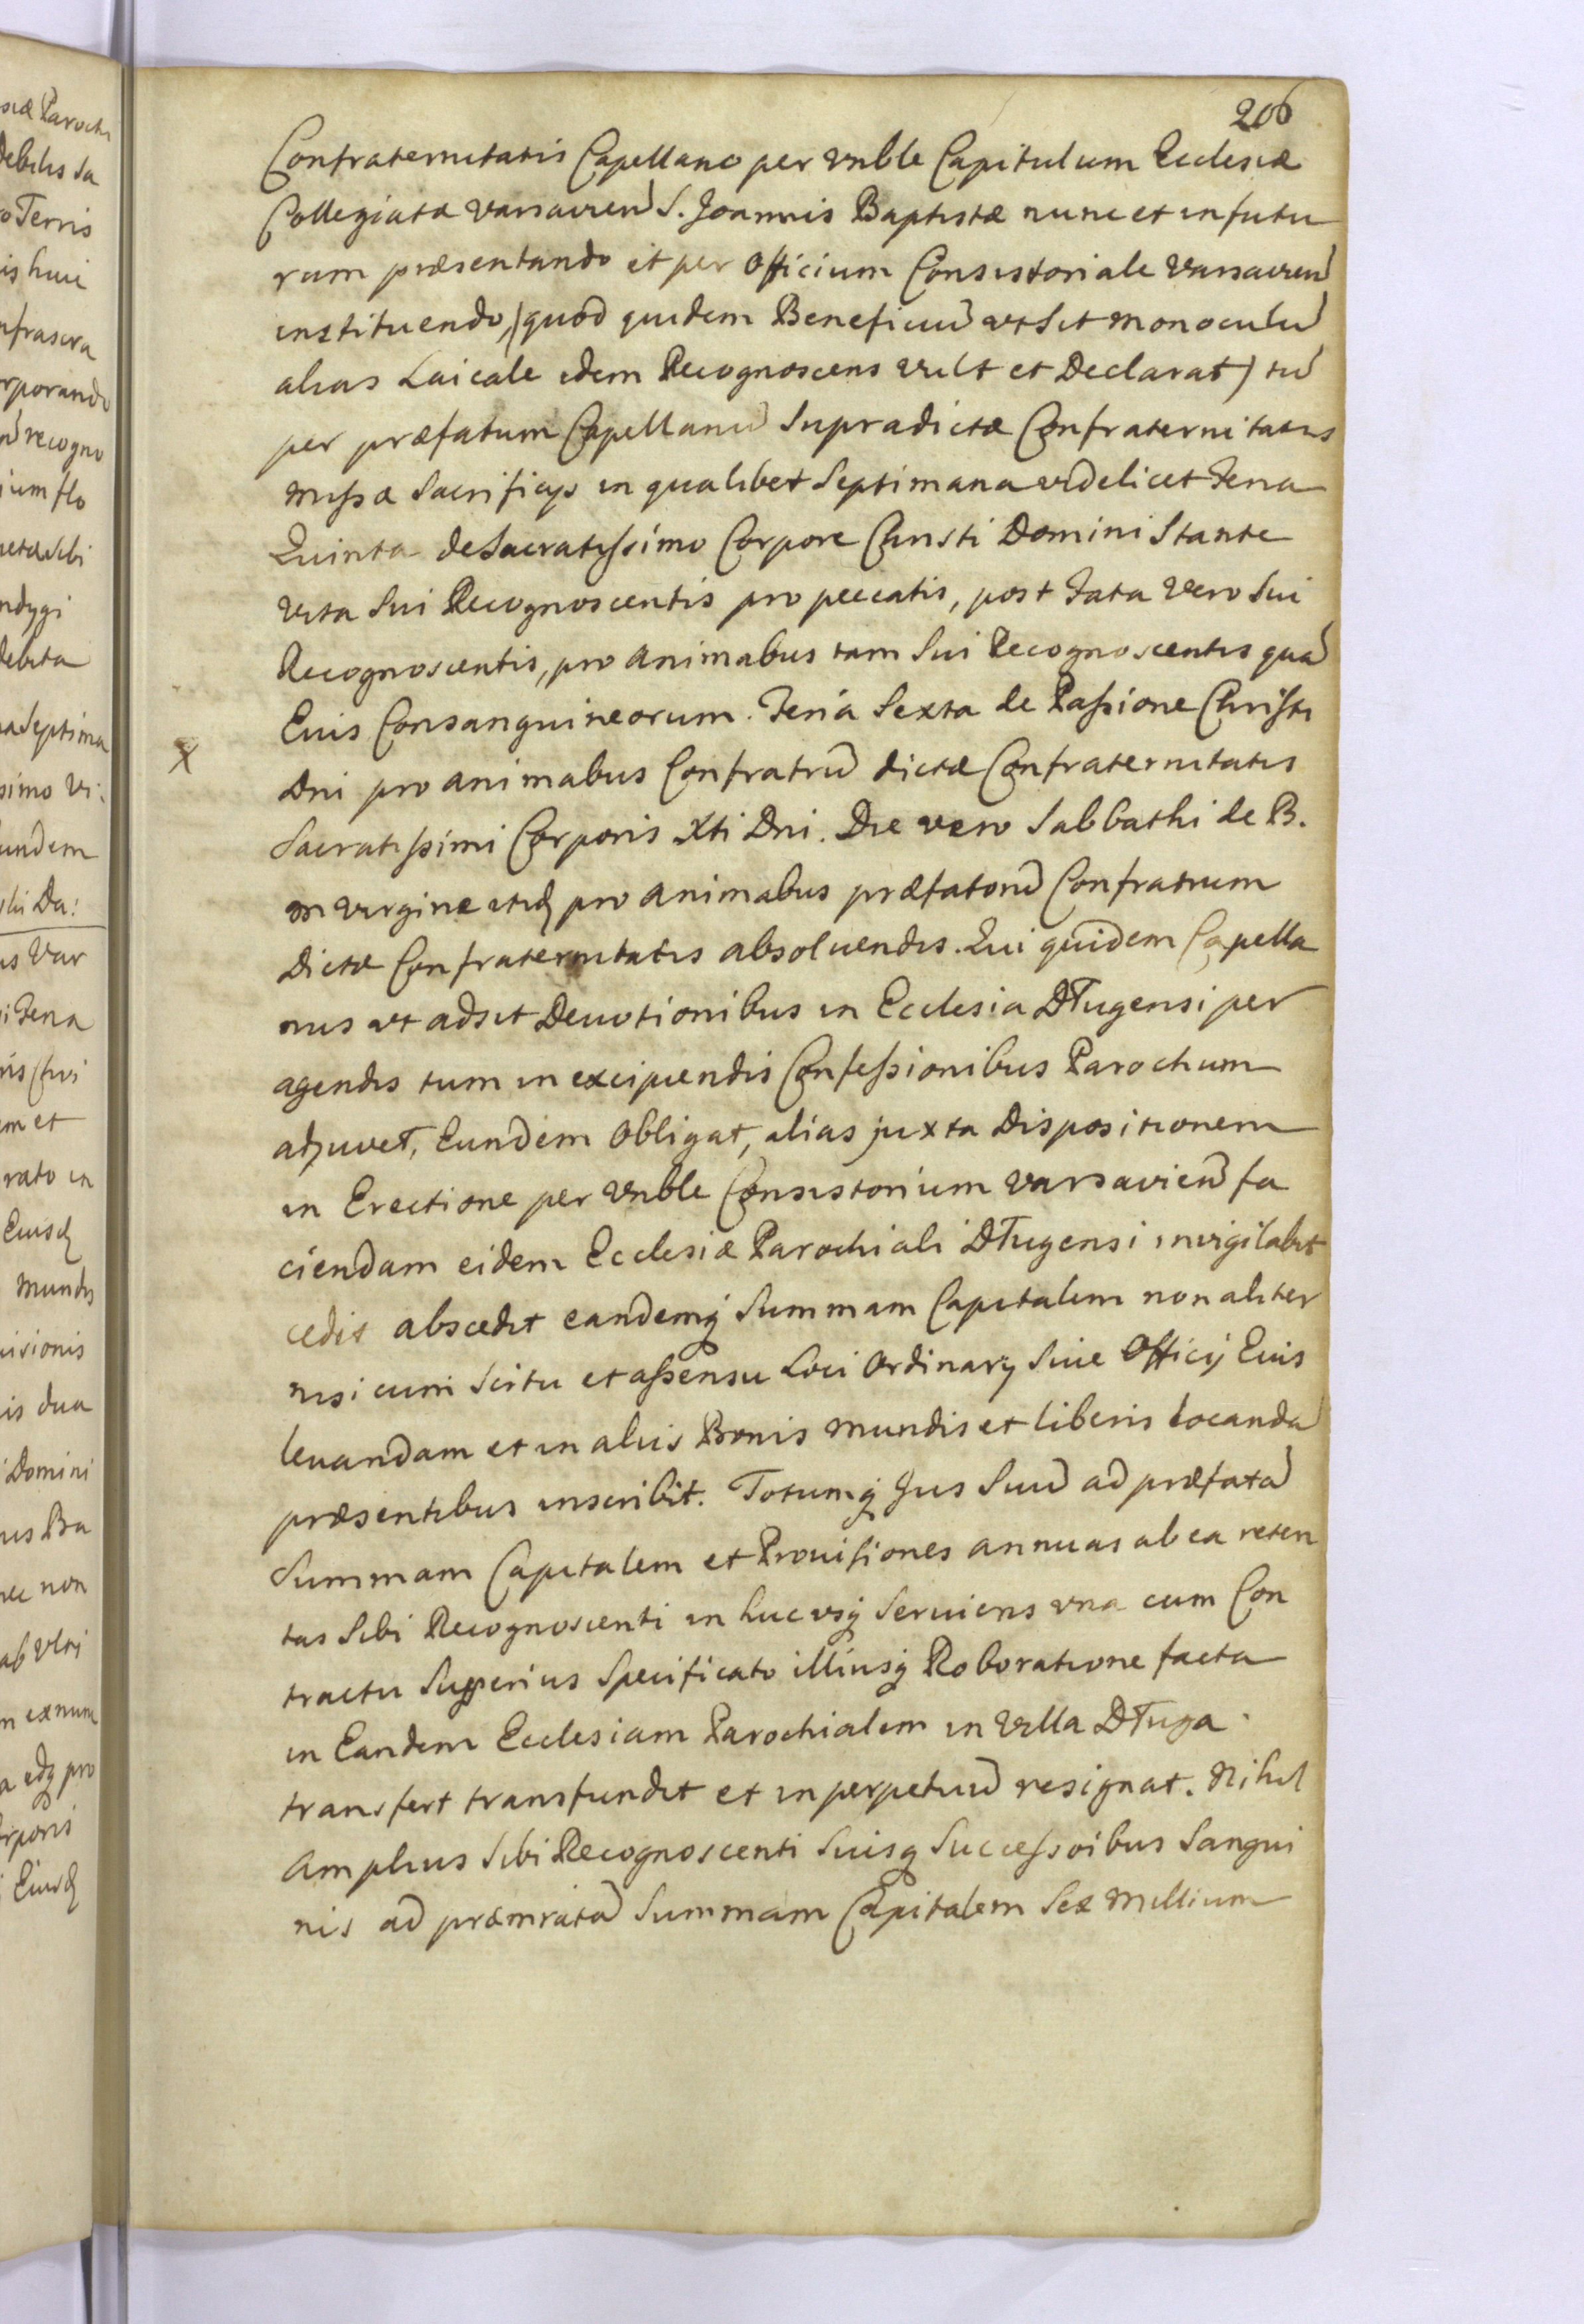 206
Confraternitatis Capellano per Vnble Capitulum Ecclesiæ
Collegiatæ Varsavien S. Joannis Baptistæ nunc et in futu
rum præsentando et per Officium Consistoriale Varsavien
instituendo, (quod quidem Beneficiū vt sit Monoculū
alias Laicale idem Recognoscens vult et Declarat) tū
per præfatum Capellanū Supradictæ Confraternitatis
Missæ Sacrificijs in qualibet Septimana videlicet Feria
Quinta de Sacratissimo Corpore Christi Domini Stante
vita Sui Recognoscentis pro peccatis, post Fata Vero Sui
Recognoscentis, pro Animabus tam Sui Recognoscentis quā
Eius Consanguineorum. Feria Sexta de Passione Christi
X
Dni pro animabus Confratrū dictæ Confraternitatis
Sacratissimi Corporis Xti Dni. Die vero Sabbathi de B.
M Virgine itidē pro Animabus præfatorū Confratrum
Dictæ Confraternitatis absoluendis. Qui quidem Capella
nus vt adsit Deuotionibus in Ecclesia Długensi per
agendis tum in excipiendis Confessionibus Parochum
adjuvet, Eundem Obligat, alias juxta Dispositionem
in Erectione per Vnble Consistorium Varsavien̄ fa
ciendam eidem Ecclesiæ Parochiali Długensi invigilabit
cedit abscedit eandemq; Summam Capitalem non aliter
nisi cum Scitu et assensu Loci Ordinarij Siue Officij Eius
leuandam et in alijs Bonis Mundis et liberis locandā
præsentibus inscribit. Totumq; Jus Suū ad præfatā
Summam Capitalem et Prouisiones annuas ab ea reten
tas Sibi Recognoscenti in hucvsq; Seruiens vna cum Con
tractu Superius Specificato illiusq; Roboratione facta
in Eandem Ecclesiam Parochialem in Villa Długa
transfert transfundit et in perpetuū resignat. Nihil
Amplius Sibi Recognoscenti Suisq; Successoibus Sangui
nis ad præmissatā Summam Capitalem Sex Millium